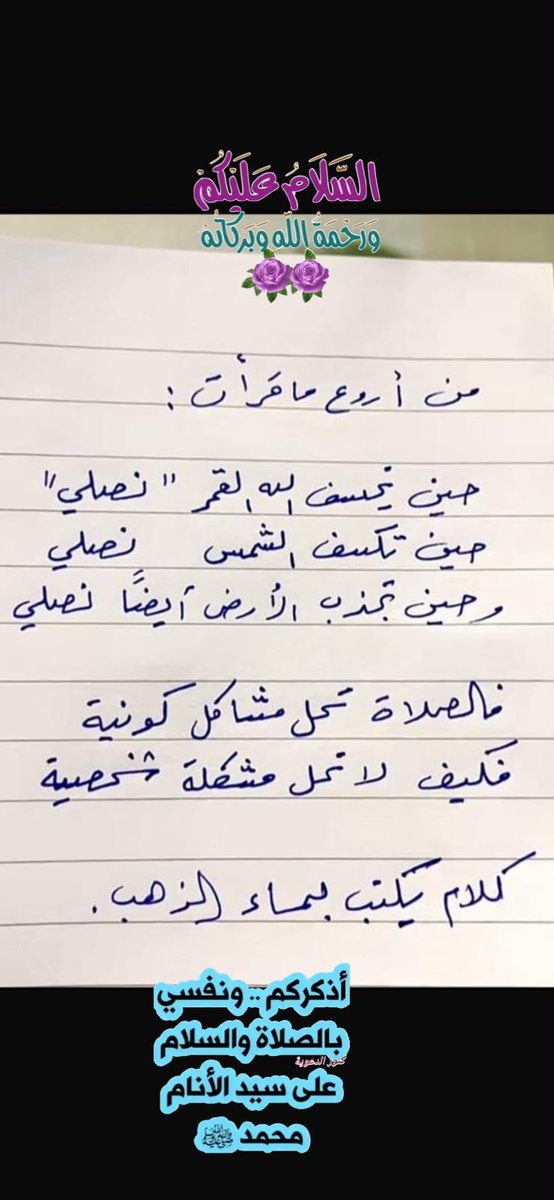 السَّلَامُ عَلَيْكُم
وَرَحْمَةُ اللَّه وَبَرَكَاتُه
من أروع ما قرأت :
حين يخسف الله القمر "نصلي"
حين تكسف الشمس نصلي
وحين تجذب الأرض أيضًا نصلي
فالصلاة تحل مشاكل كونية
فكيف لا تحل مشكلة شخصية
كلام يكتب بماء الذهب .
أذكركم .. ونفسي
بالصلاة والسلام
كنوز الدعوية
على سيد الأنام
محمد ﷺ